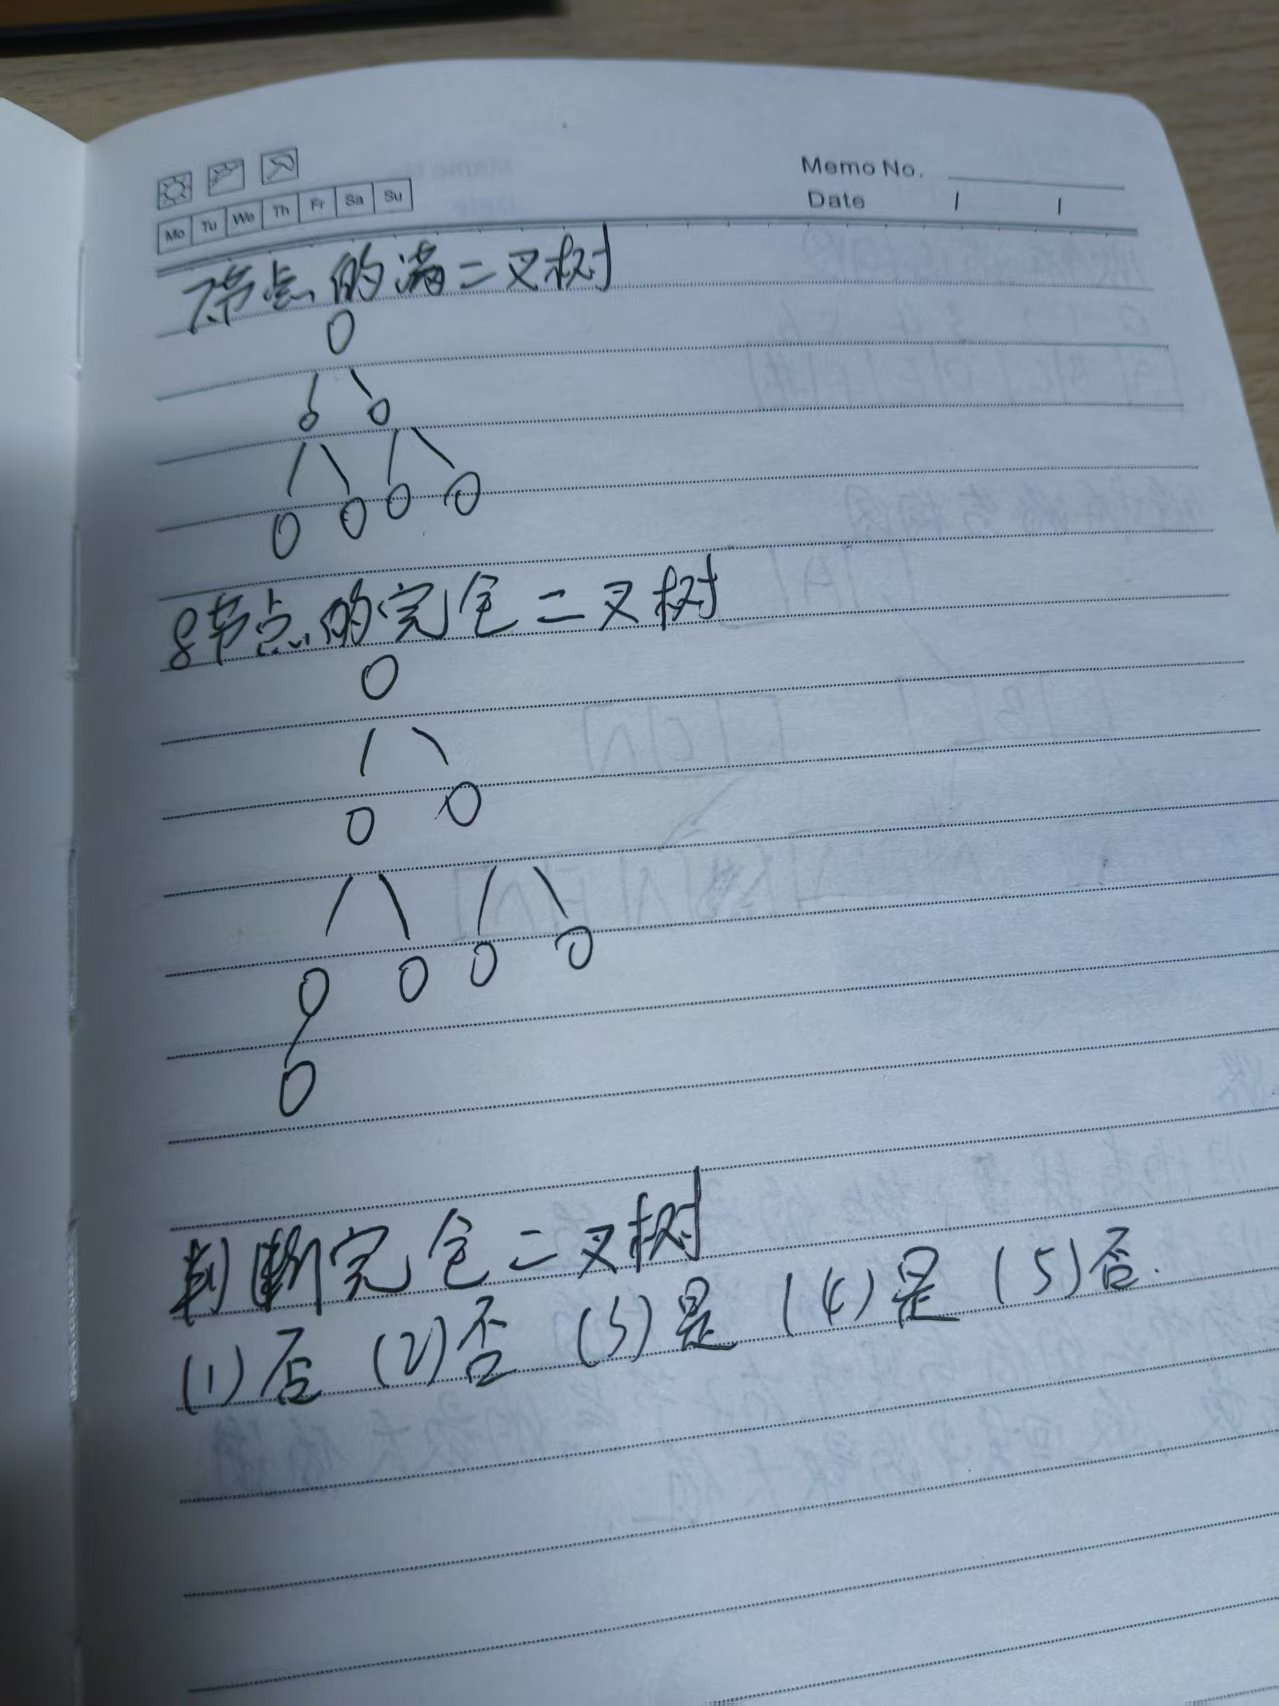 Memo No.
Date / /
Mo Tu We Th Fr Sa Su
7节点的满二叉树
8节点的完全二叉树
判断完全二叉树
(1)否 (2)否 (3)是 (4)是 (5)否.